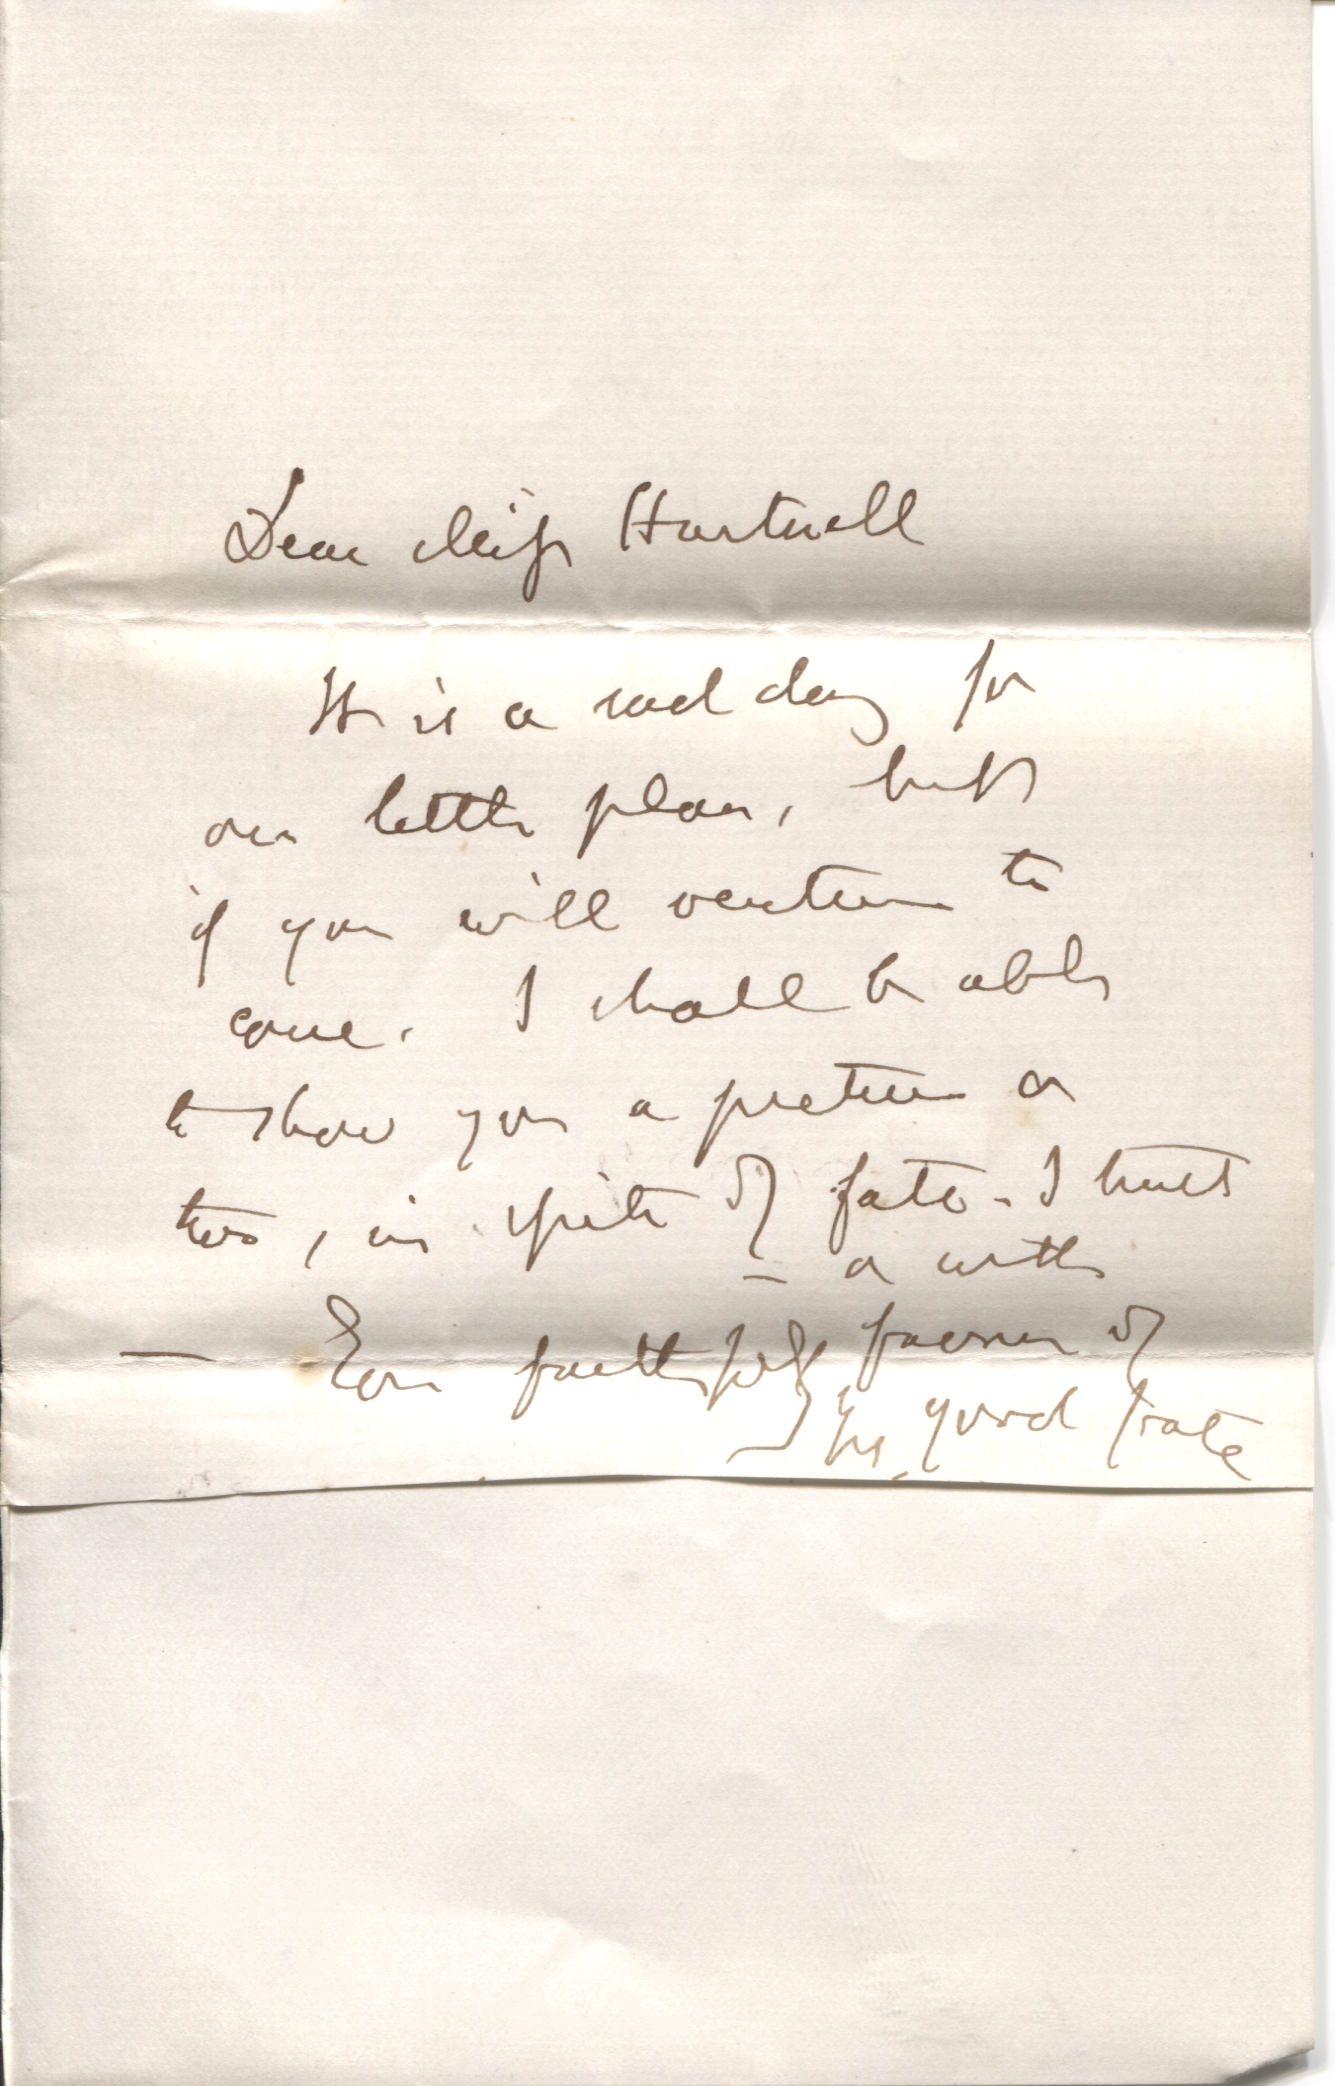 Dear Miss Hartwell
It is a sad day for
our little plan, but
if you will venture to
come. I shall be able
to show you a picture or
two, in spite of fate - I trust
— or with
— Your faithful favour of
good fate